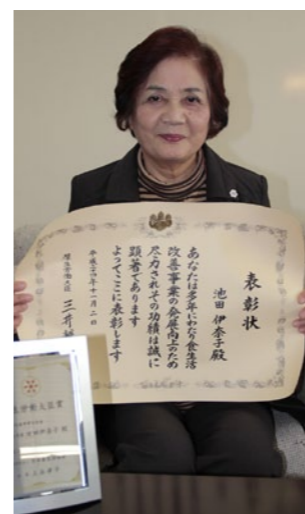 表彰状
池田 伊奈子 殿
あなたは多年にわたり食生活
改善事業の発展向上のため
尽力されその功績は誠に
顕著であります
よってここに表彰します
平成二十四年十一月二日
厚生労働大臣 三井
労働大臣賞